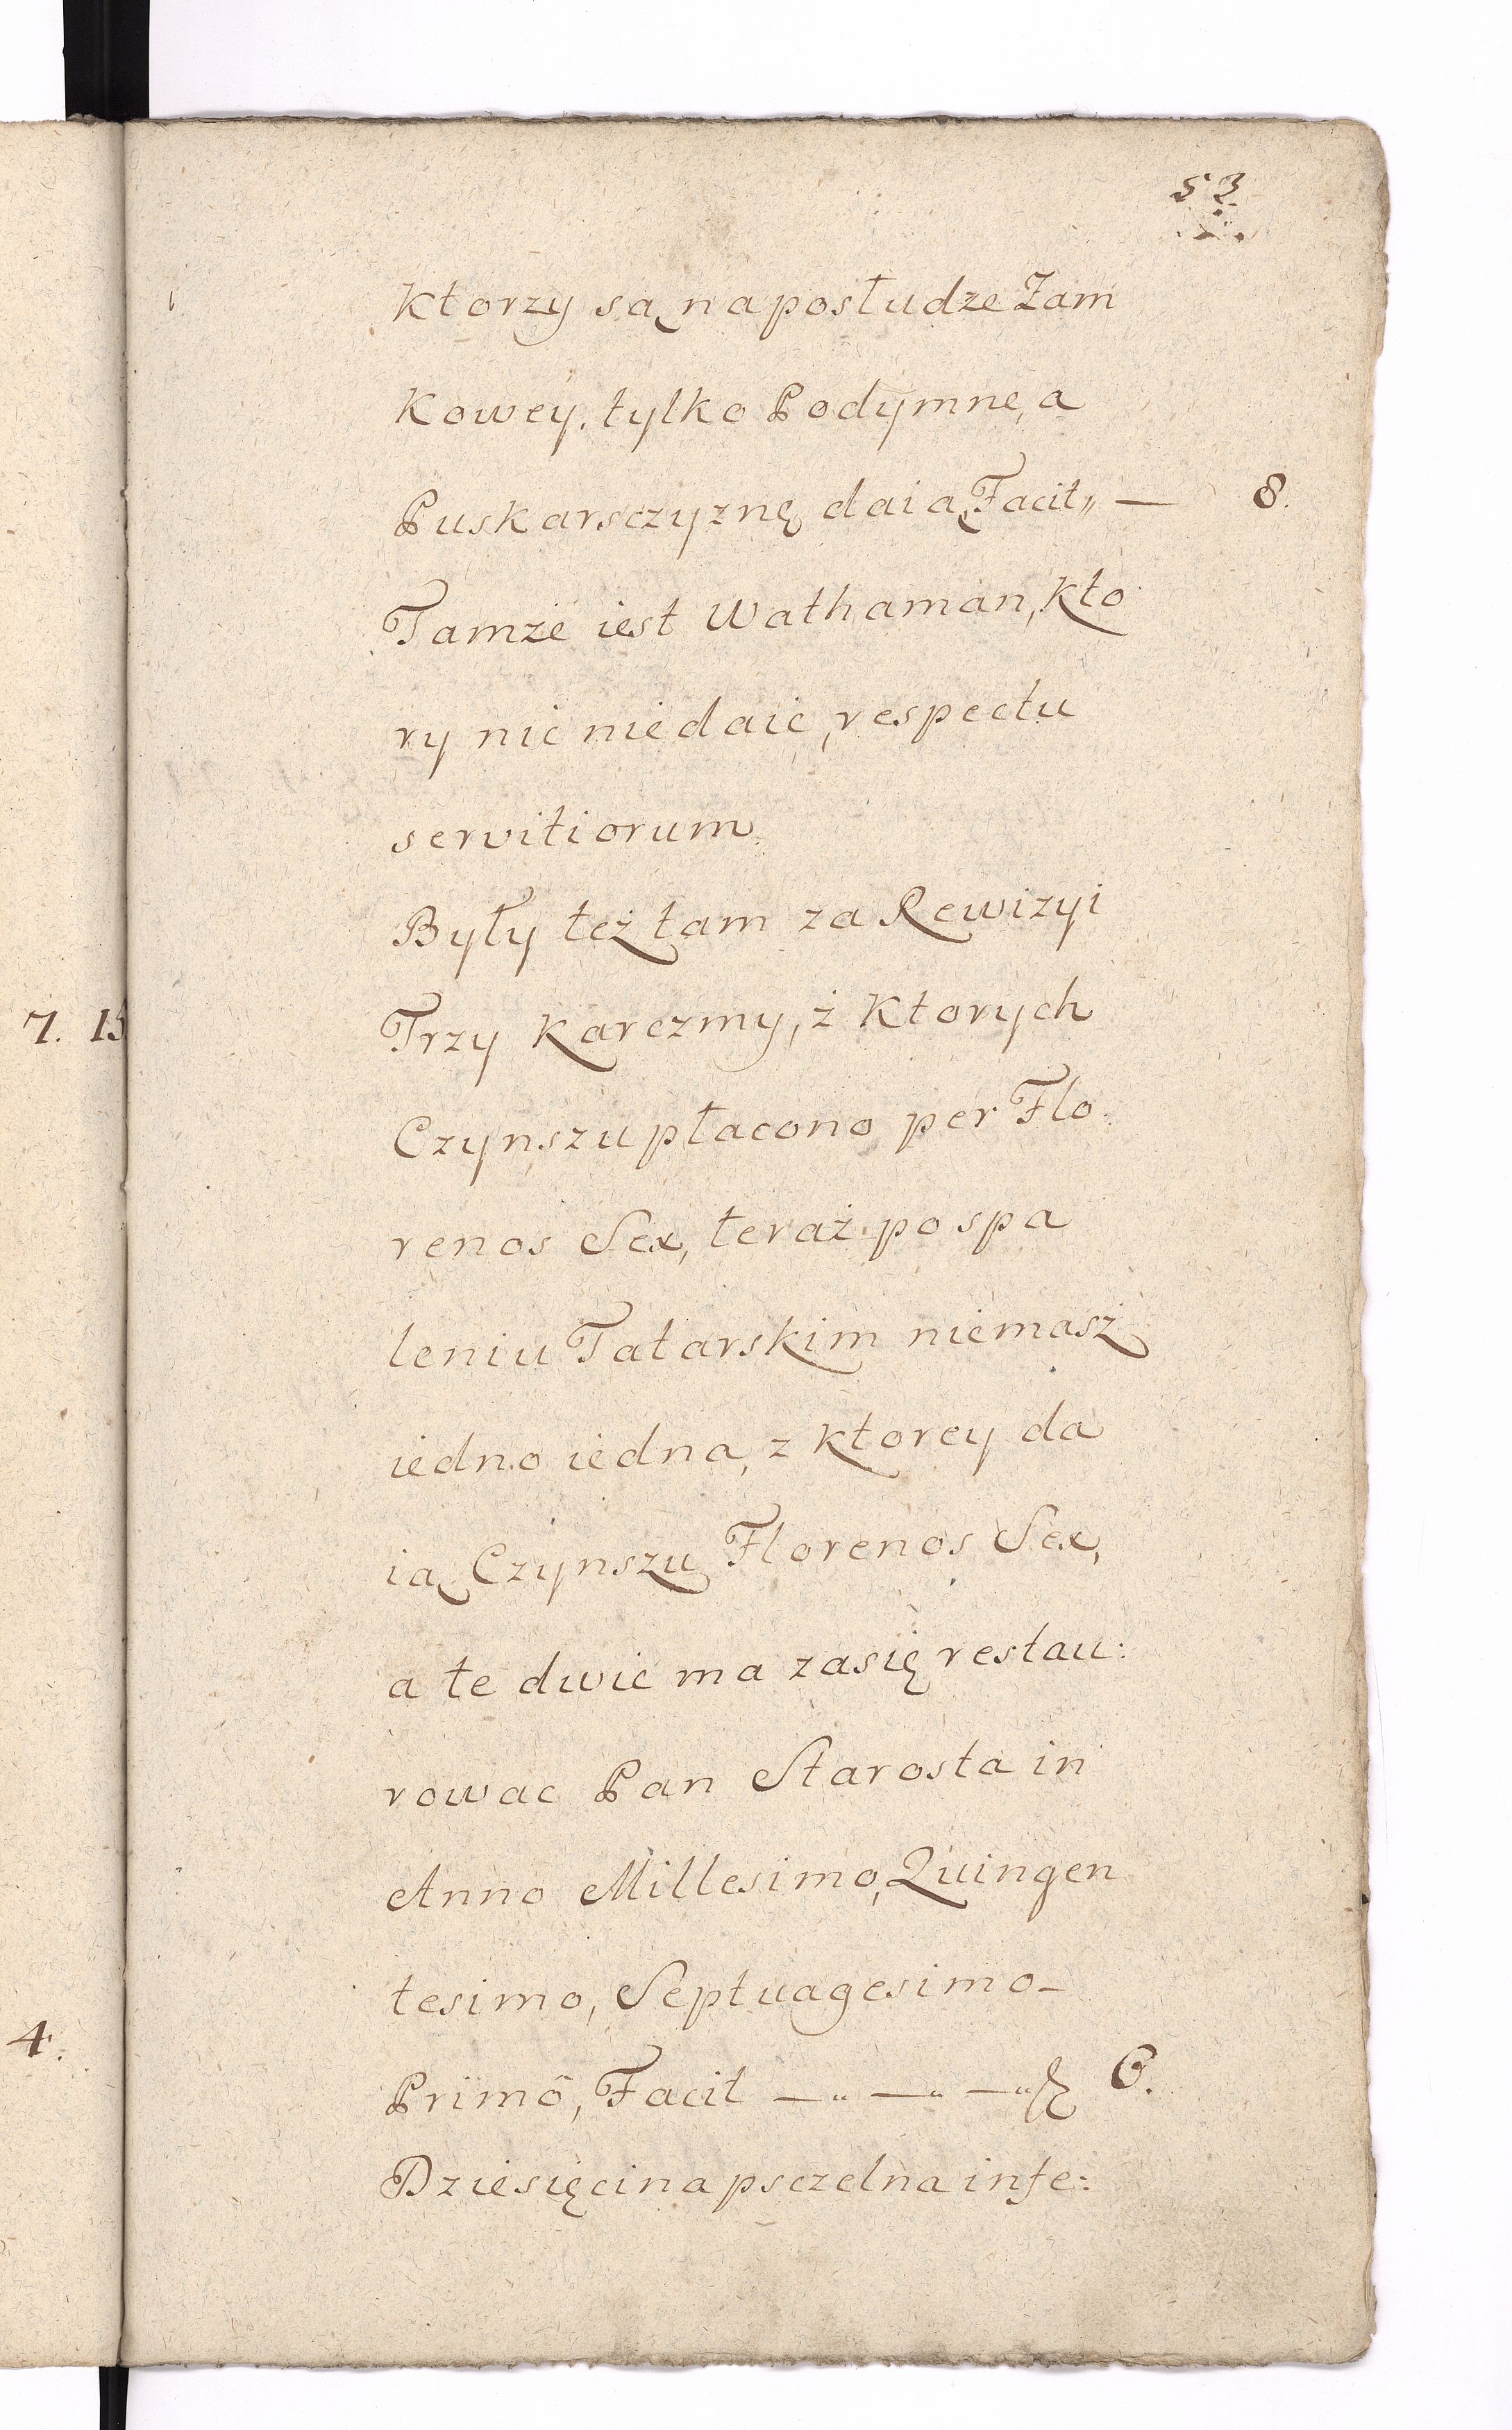 53
Ktorzy są na posłudze Zam
Kowey, tylko Podymne, a
Puskarsczyznę daią, Facit„ — 8.
Tamże iest Wathaman, Kto
ry nic niedaie, respectu
servitiorum.
Były też tam za Rewizyi
Trzy Karczmy, z Ktorych
Czynszu płacono per Flo
renos Sex, teraz po spa
leniu Tatarskim niemasz
iedno iedna, z ktorey da
ią Czynszu Florenos Sex,
a te dwie ma zasię restau:
rowac Pan Starosta in
Anno Millesimo, Quingen
tesimo, Septuagesimo_
7. 15
4.
Primô, Facit —„ —„ —„ 6.
Dziesięcina psczelna infe: